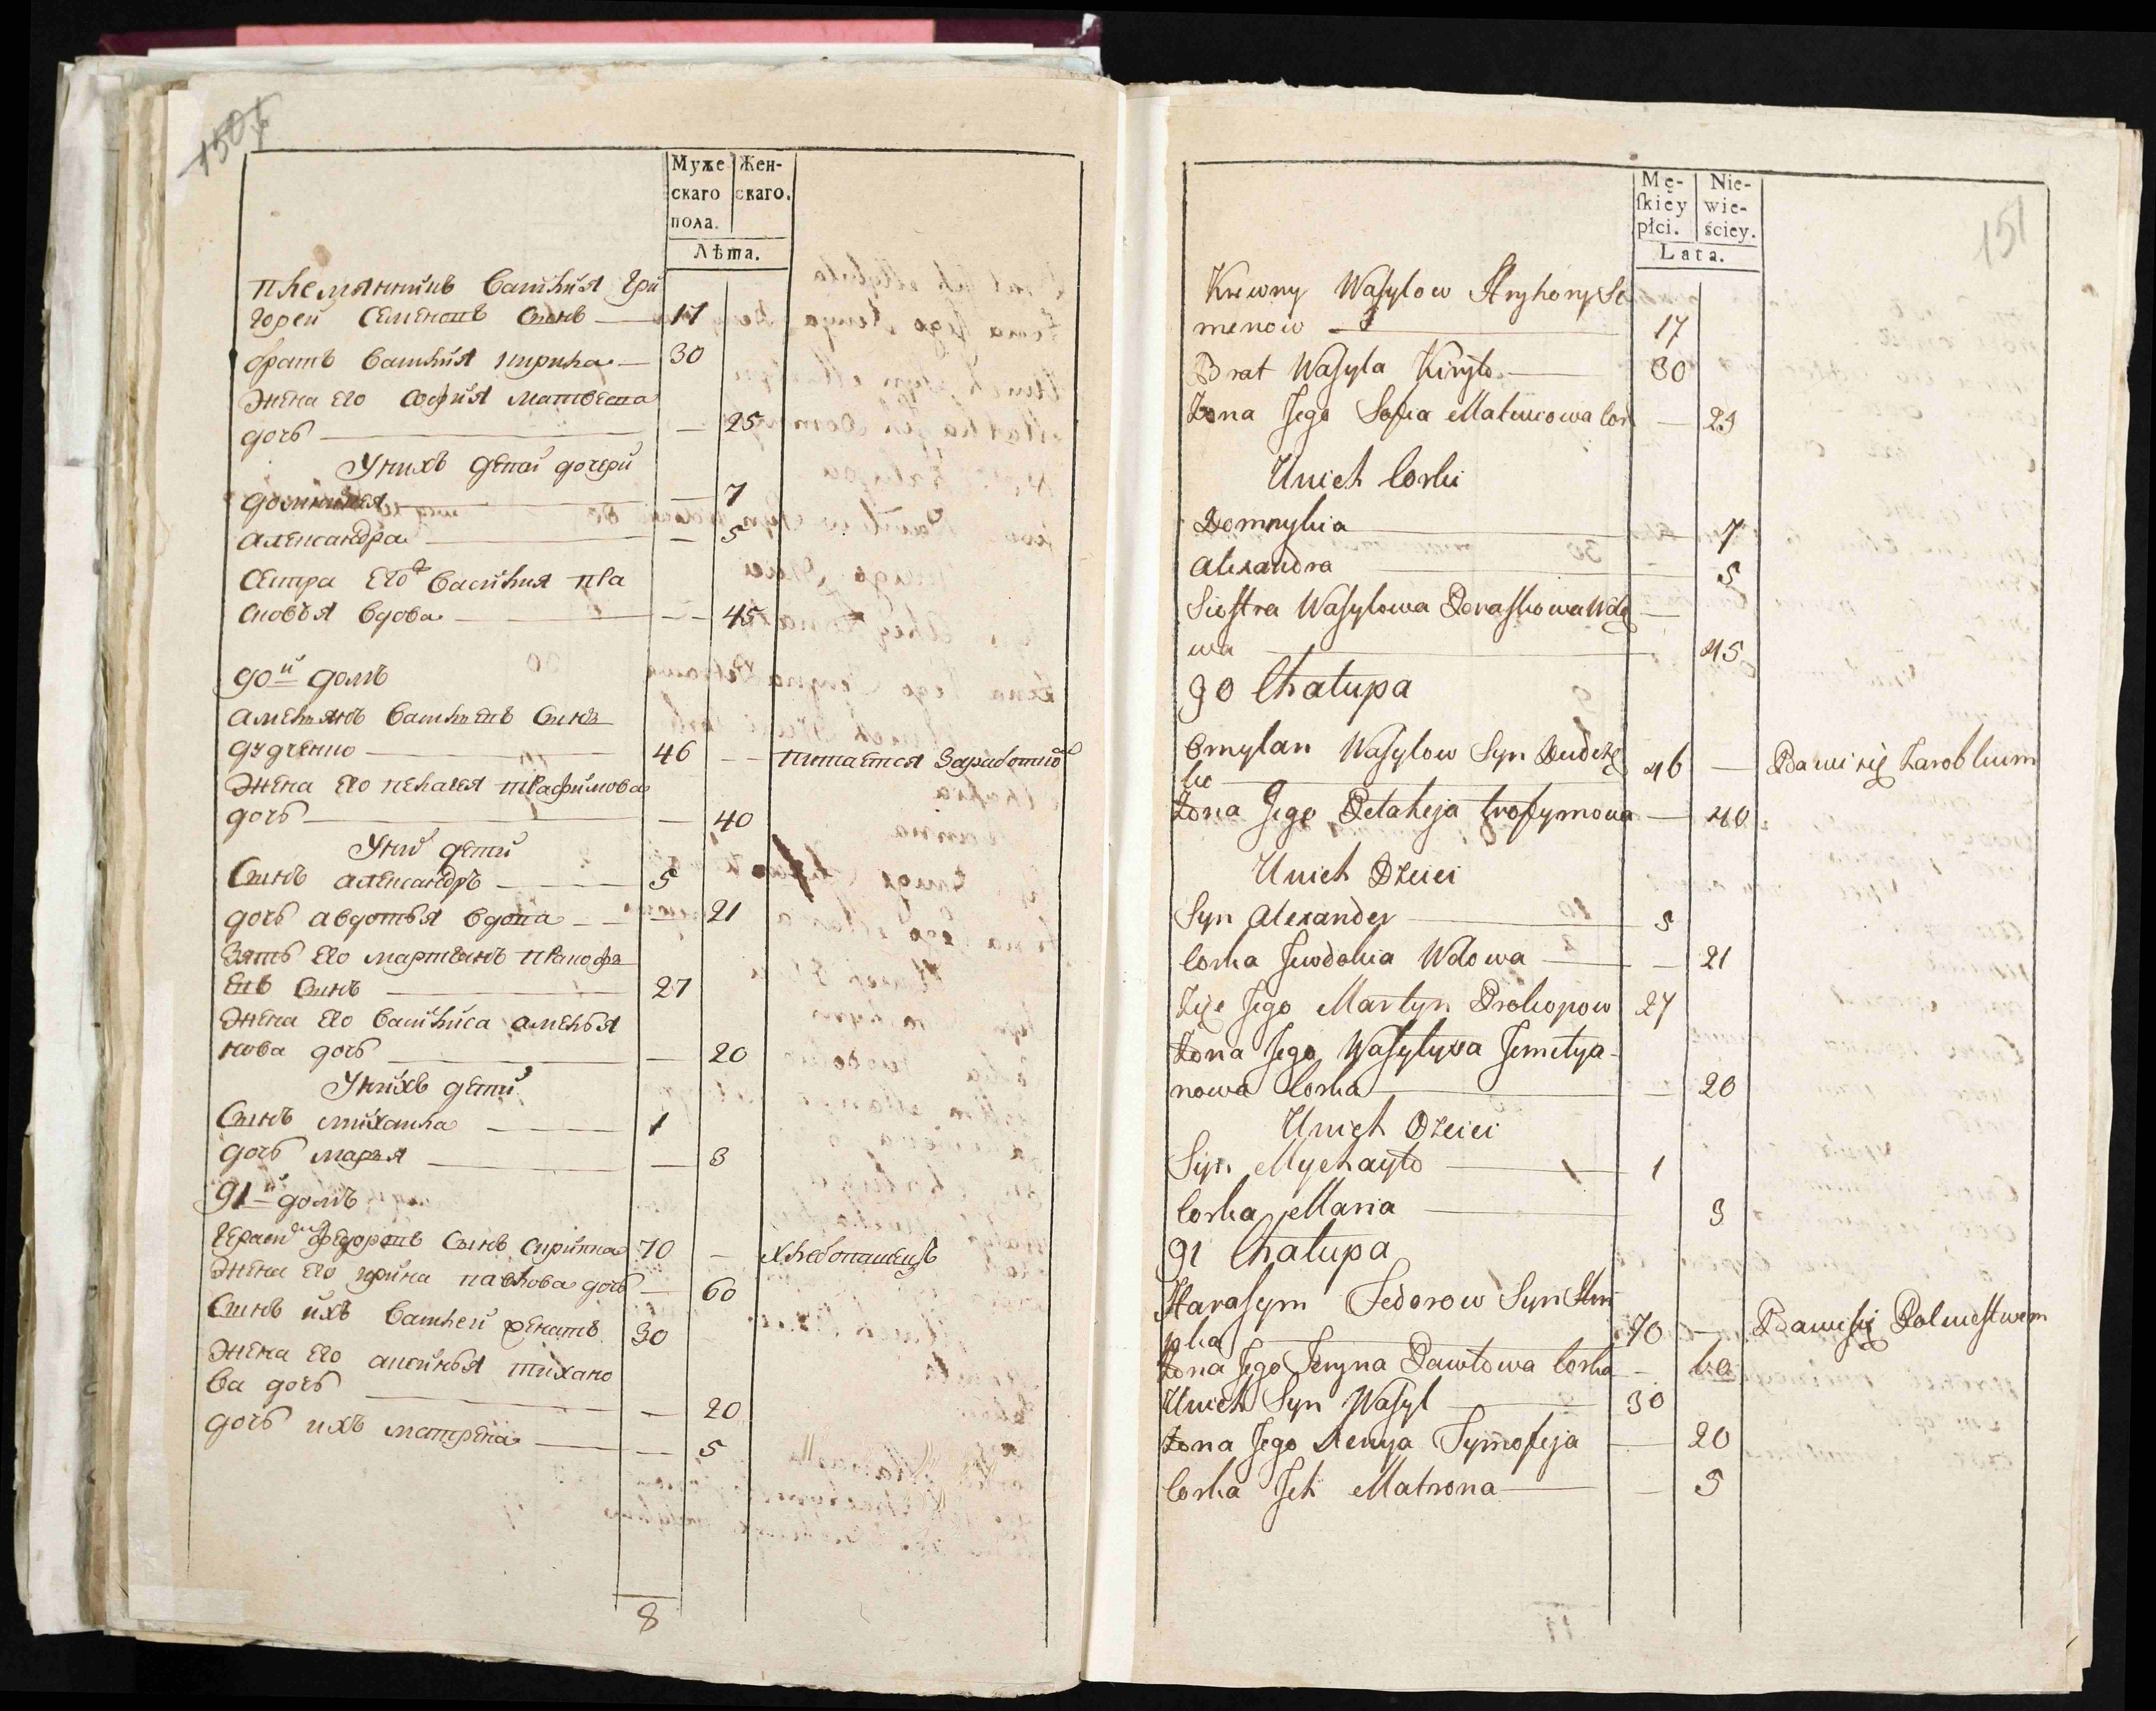 150
Муже Жен-
скаго скаго.
пола.
Лѣта.
племянникъ василия гри
горей семеновъ сынъ — 17
братъ василия кирила — 30
жена его софия матвеева
дочь — — 25
У нихъ детей дочери
домникия — — 7
александра — — 5
сестра его василия пра
сковья вдова — — 45
90й домъ
амельянъ васильевъ сынъ
дудченко — 46 — питается заработкою
жена его пелагея трафимова
дочь — — 40
У них дети
сынъ александръ — 5
дочь авдотья вдова — — 21
зять его мартынъ пракофь
евъ сынъ — 27
жена его василиса амелья
нова дочь — — 20
У нихъ дети
сынъ михаила — 1
дочь марья — — 3
91й домъ
герасим федоровъ сынъ скрипка 70 — хлебопашецъ
жена его ирина павлова дочь — 60
сынъ ихъ василей женатъ 30
жена его аксинья тихано
ва дочь — — 20
дочь ихъ матрена — — 5
8
151
Mę- Nie-
ſkiey wie-
płci. ściey.
Lata.
Krewny Wasylow Hryhory Se
menow — 17
Brat Wasyla Kiryło — 30
Żona Jego Sofia Matwiowa Cor — 25
Unich Corki
Domnykia — 7
Alexandra — 5
Siostra Wasylowa Poraskowa Wdo —
wa — 45
90 Chałupa
Omylan Wasylow Syn Dudcze
ko 46 — Bawi się Zarobkiem
Żona Jego Pelaheja trofymowa — 40
Unich Dzieci
Syn Alexander — 5
Corka Jewdokia Wdowa — — 21
Zięc Jego Martyn Prokopow 27
Żona Jego Wasylysa Jemelya-
nowa Corka — — 20
Unich Dzieci
Syn Mychayło — 1
Corka Maria — 3
91 Chałupa
Harasym Fedorow Syn Skri
pka — 70 — Bawi się Rolnictwem
Żona Jego Jeryna Pawłowa Corka — 60
Unich Syn Wasyl — 30
Żona Jego Xenya Tymofeja — 20
Corka Jch Matrona — — 5